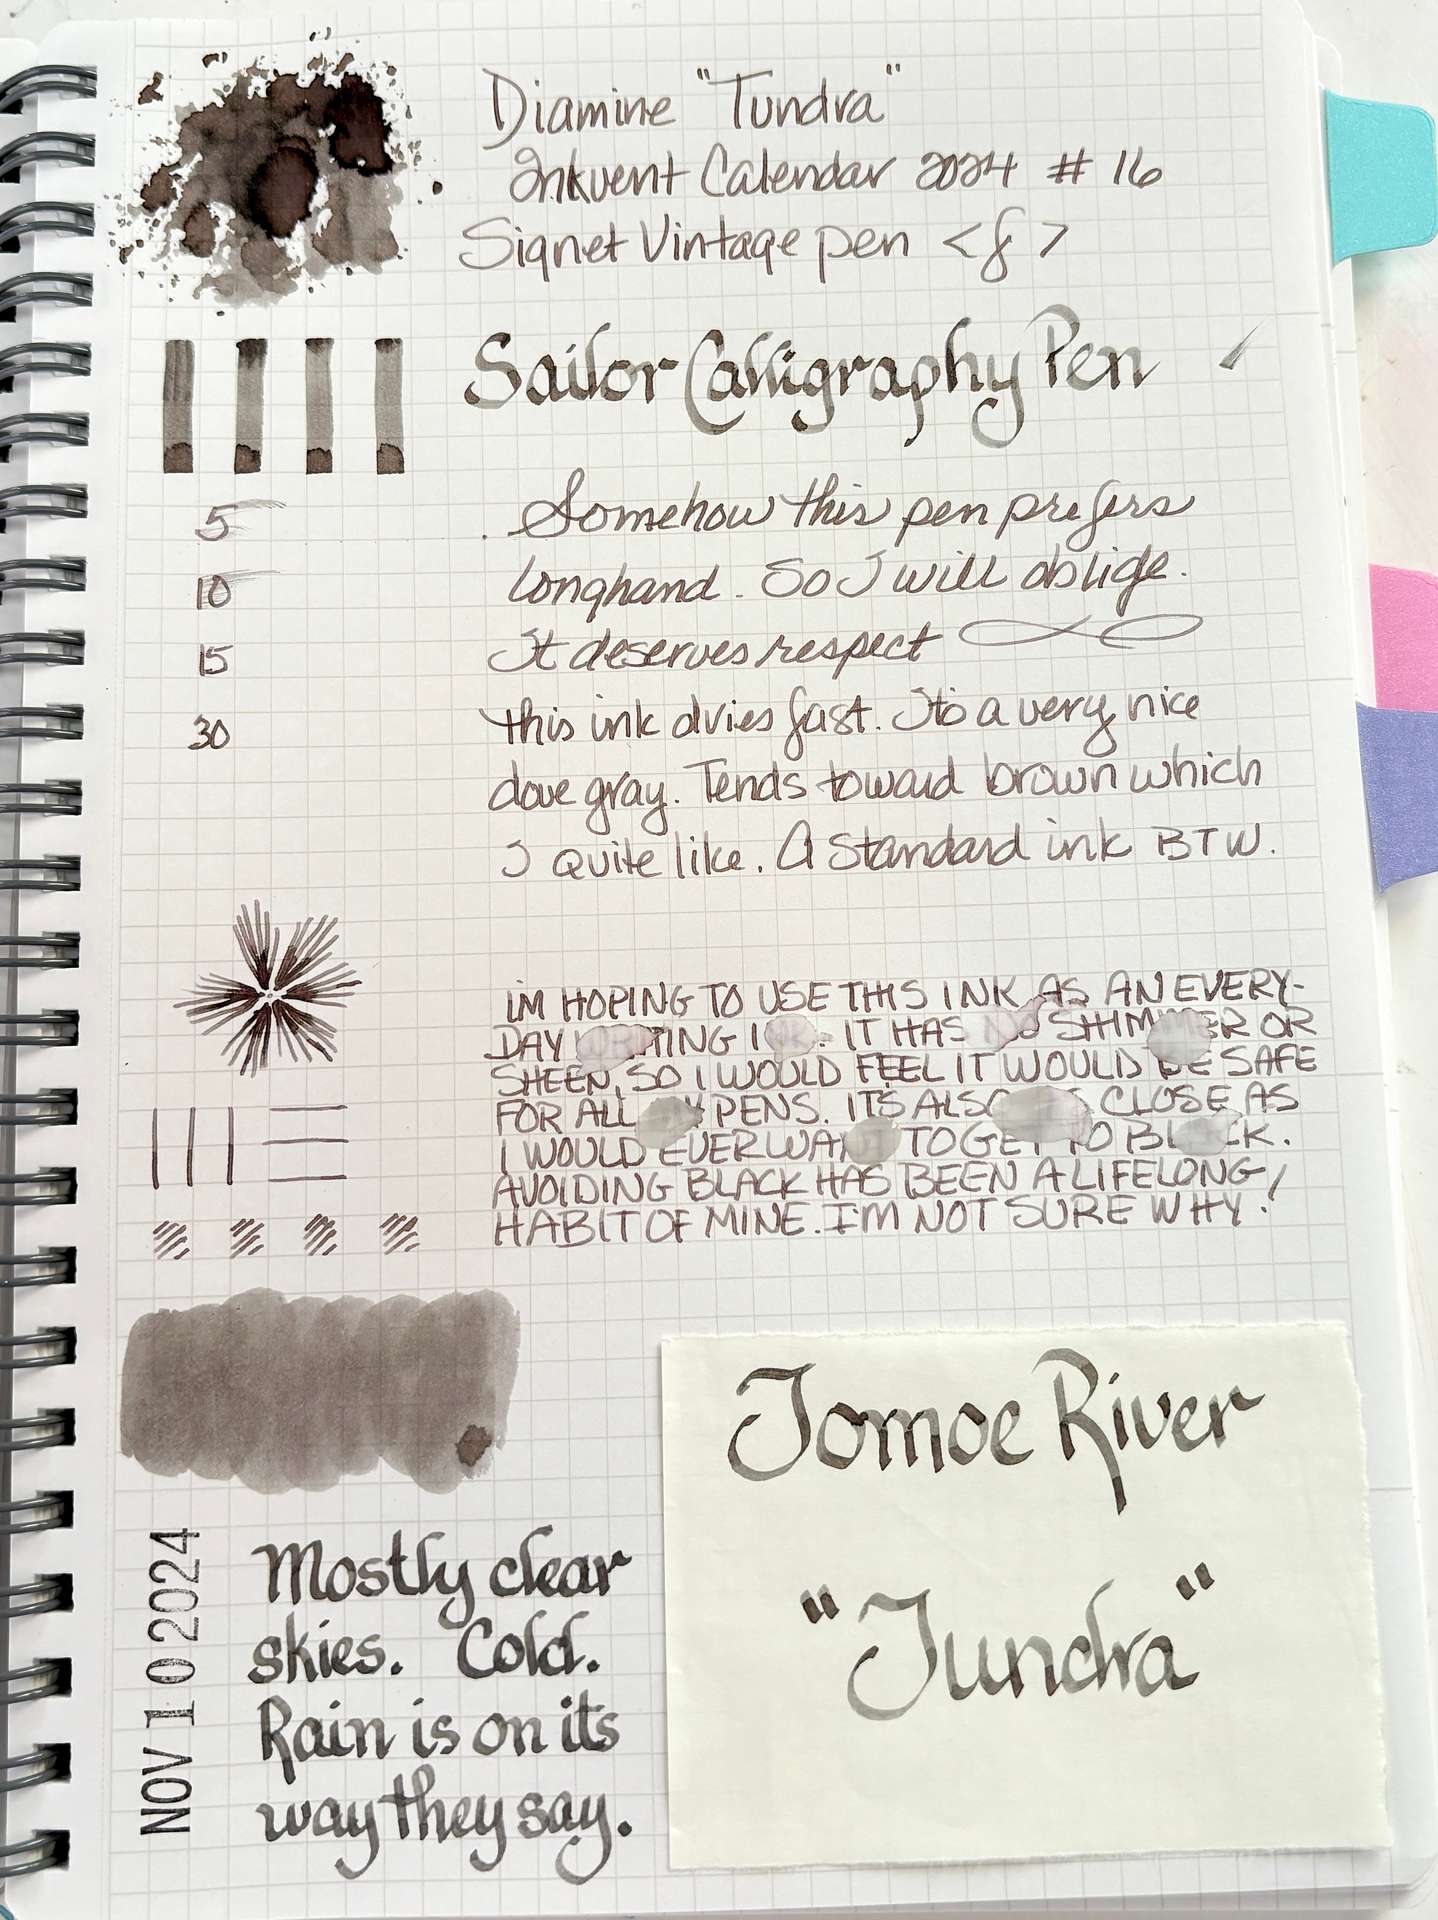 Diamine "Tundra"
Inkvent Calendar 2024 # 16
Signet Vintage pen <f>
Sailor Calligraphy Pen
5
10
15
30
Somehow this pen prefers
longhand. So I will oblige.
It deserves respect
this ink dries fast. It's a very nice
dove gray. Tends toward brown which
I quite like. A standard ink BTW.
I'M HOPING TO USE THIS INK AS AN EVERY-
DAY WRITING INK. IT HAS NO SHIMMER OR
SHEEN, SO I WOULD FEEL IT WOULD BE SAFE
FOR ALL MY PENS. IT'S ALSO AS CLOSE AS
I WOULD EVER WANT TO GET TO BLACK.
AVOIDING BLACK HAS BEEN A LIFELONG
HABIT OF MINE. I'M NOT SURE WHY!
Tomoe River
"Tundra"
NOV 10 2024
Mostly clear
skies. Cold.
Rain is on its
way they say.